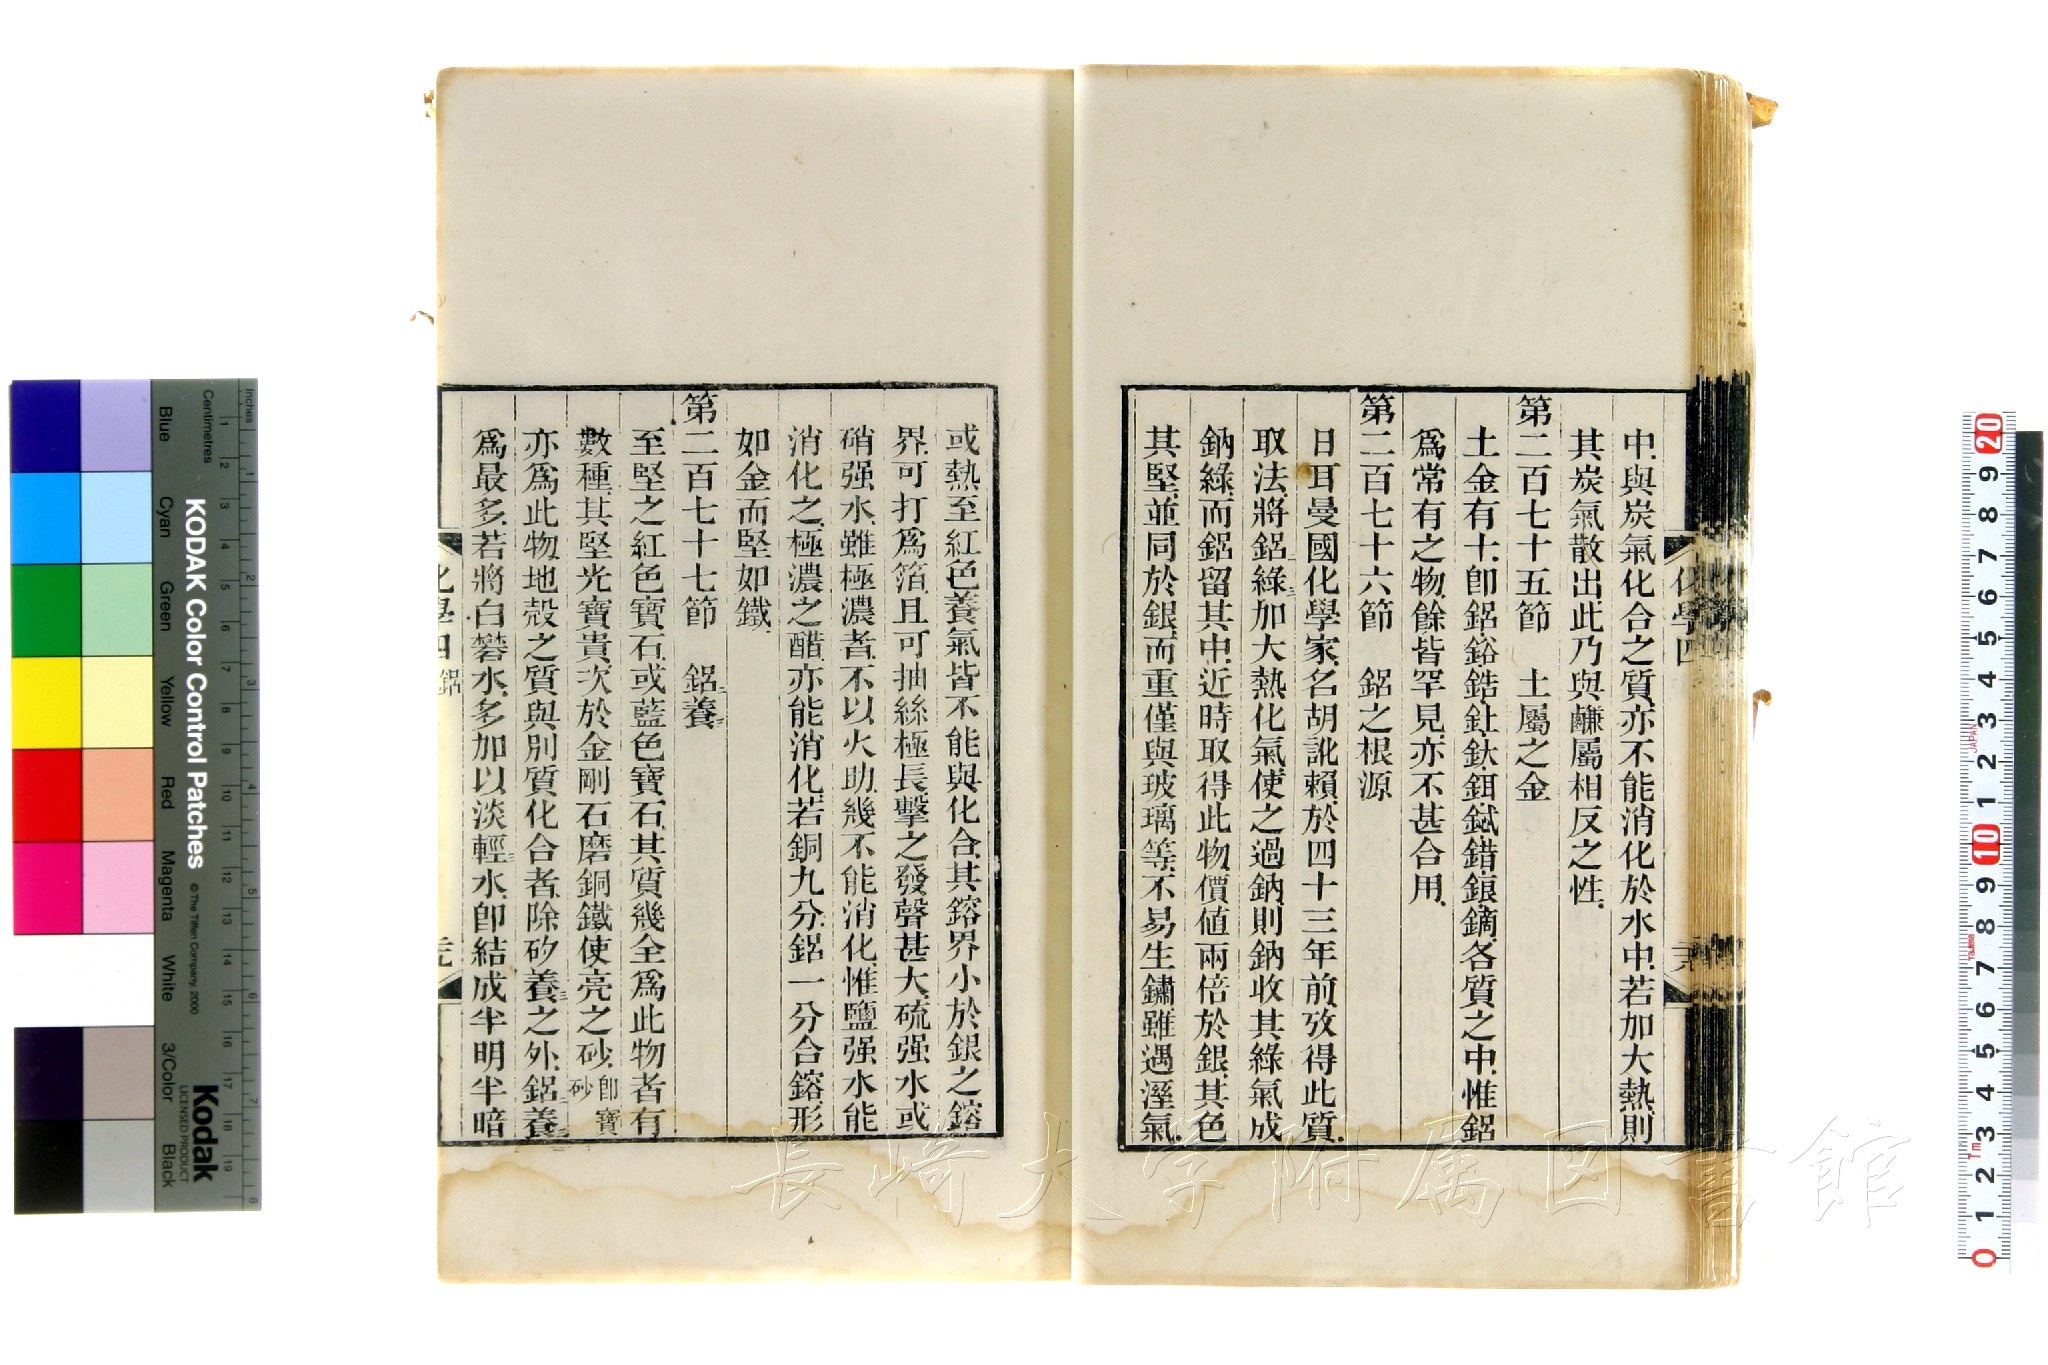 中、與炭氣化合之質、亦不能消化於水中、若加大熱、則
其炭氣散出、此乃與鹻屬相反之性、
第二百七十五節　土屬之金
土金有十、卽鋁鋊鋯釷釱鉺鋱錯鋃鏑、各質之中、惟鋁
爲常有之物、餘皆罕見、亦不甚合用、
第二百七十六節　鋁之根源
日耳曼國化學家、名胡訿賴、於四十三年前、攷得此質、
取法、將鋁二綠三加大熱化氣、使之過鈉、則鈉收其綠氣成
鈉綠、而鋁留其中、近時取得此物、價値兩倍於銀、其色
其堅、並同於銀、而重僅與玻璃等、不易生鏽、雖遇溼氣、
化學四
或熱至紅色、養氣皆不能與化合、其鎔界小於銀之鎔
界、可打爲箔、且可抽絲極長、擊之發聲甚大、硫强水或
硝强水、雖極濃者、不以火助、幾不能消化、惟鹽强水能
消化之、極濃之醋亦能消化、若銅九分、鋁一分合鎔、形
如金而堅如鐵、
第二百七十七節　鋁二養三
至堅之紅色寶石、或藍色寶石、其質幾全爲此物者有
數種、其堅光寶貴、次於金剛石、磨銅鐵使亮之砂、卽寶砂
亦爲此物、地殼之質與別質化合者、除矽養三之外、鋁二養三
爲最多、若將白礬水、多加以淡輕三水、卽結成半明半暗
化學四 鋁
KODAK Color Control Patches
© The Tiffen Company, 2000
Kodak
LICENSED PRODUCT
Inches
Centimetres
Blue
Cyan
Green
Yellow
Red
Magenta
White
3/Color
Black
JAPAN
長崎大学附属図書館